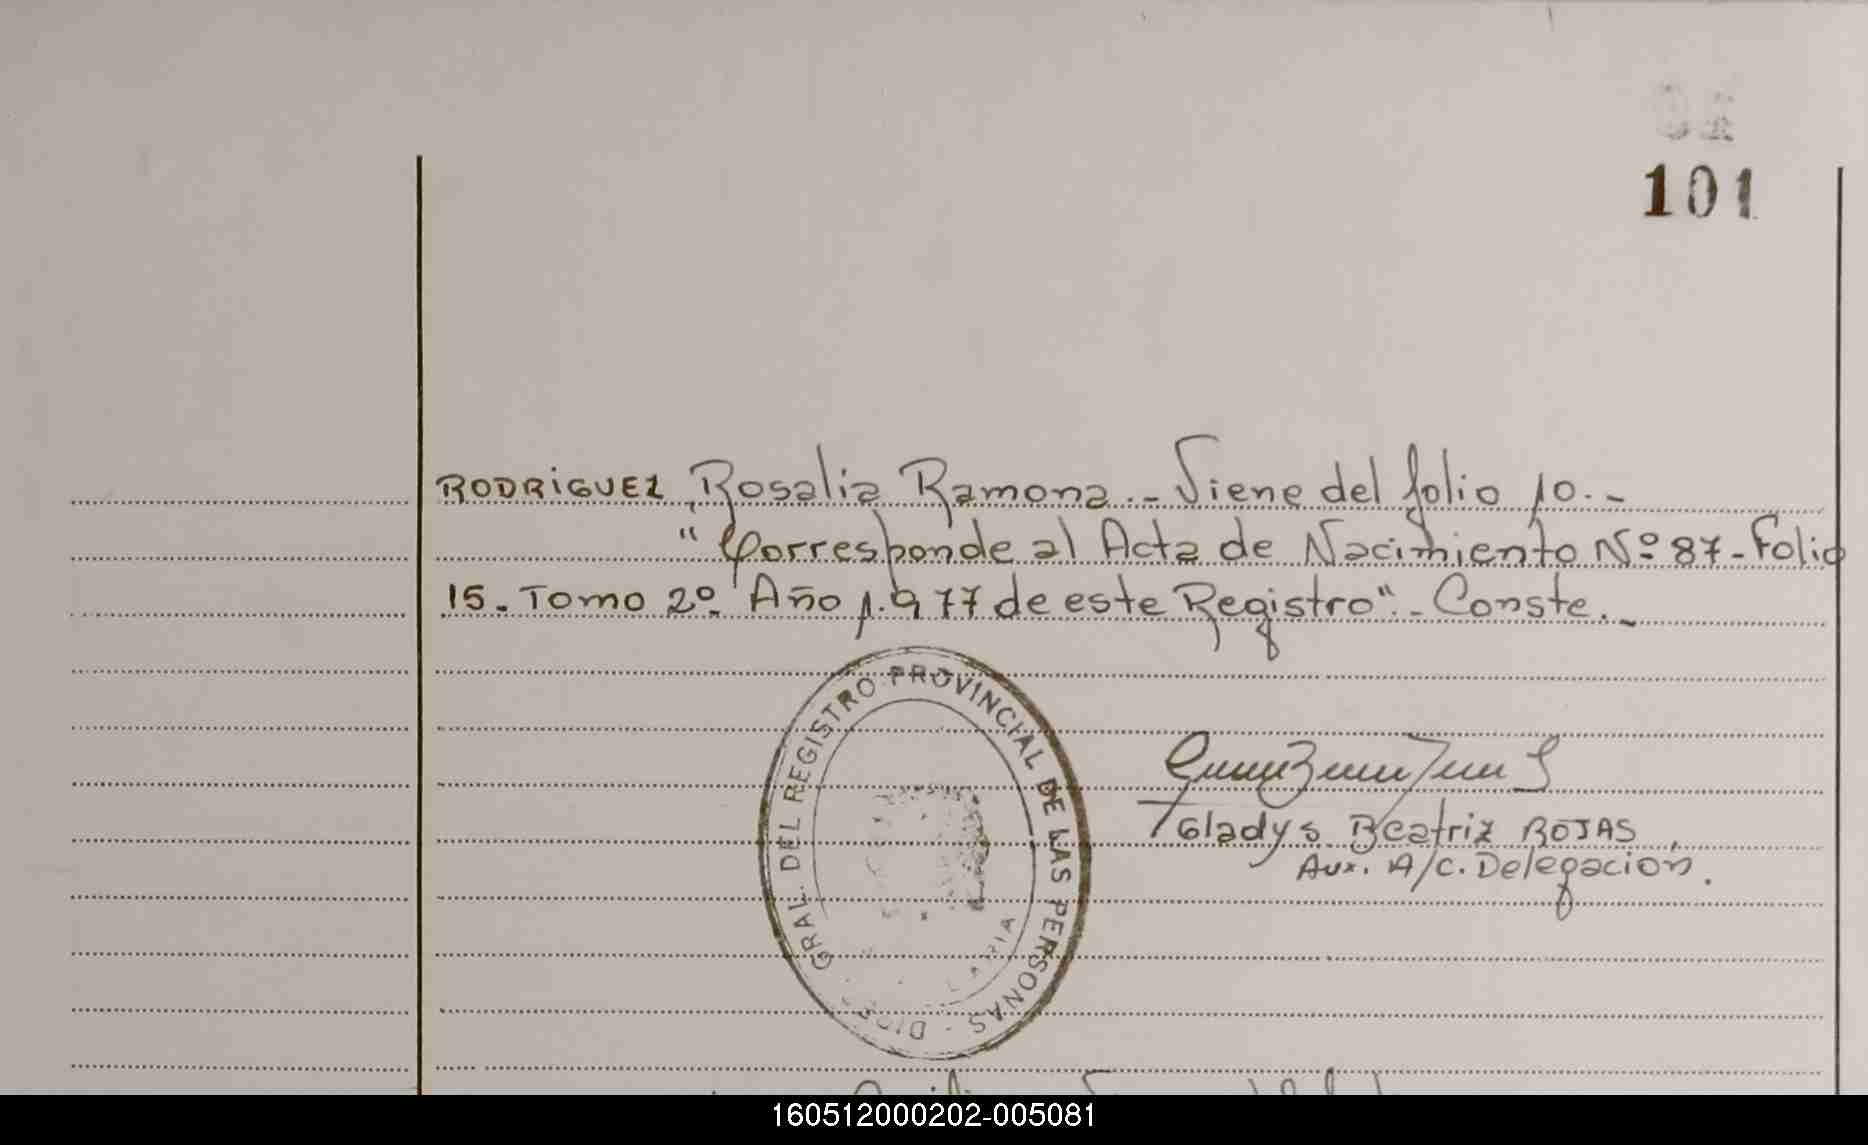 101
RODRIGUEZ, Rosalia Ramona.- Viene del folio 10.-
" Corresponde al Acta de Nacimiento Nº 87-Folio
15.- Tomo 2º. Año 1.977 de este Registro".- Conste.-
GRAL. DEL REGISTRO PROVINCIAL DE LAS PERSONAS -
Gladys Beatriz ROJAS
Aux. A/C. Delegación.
160512000202-005081